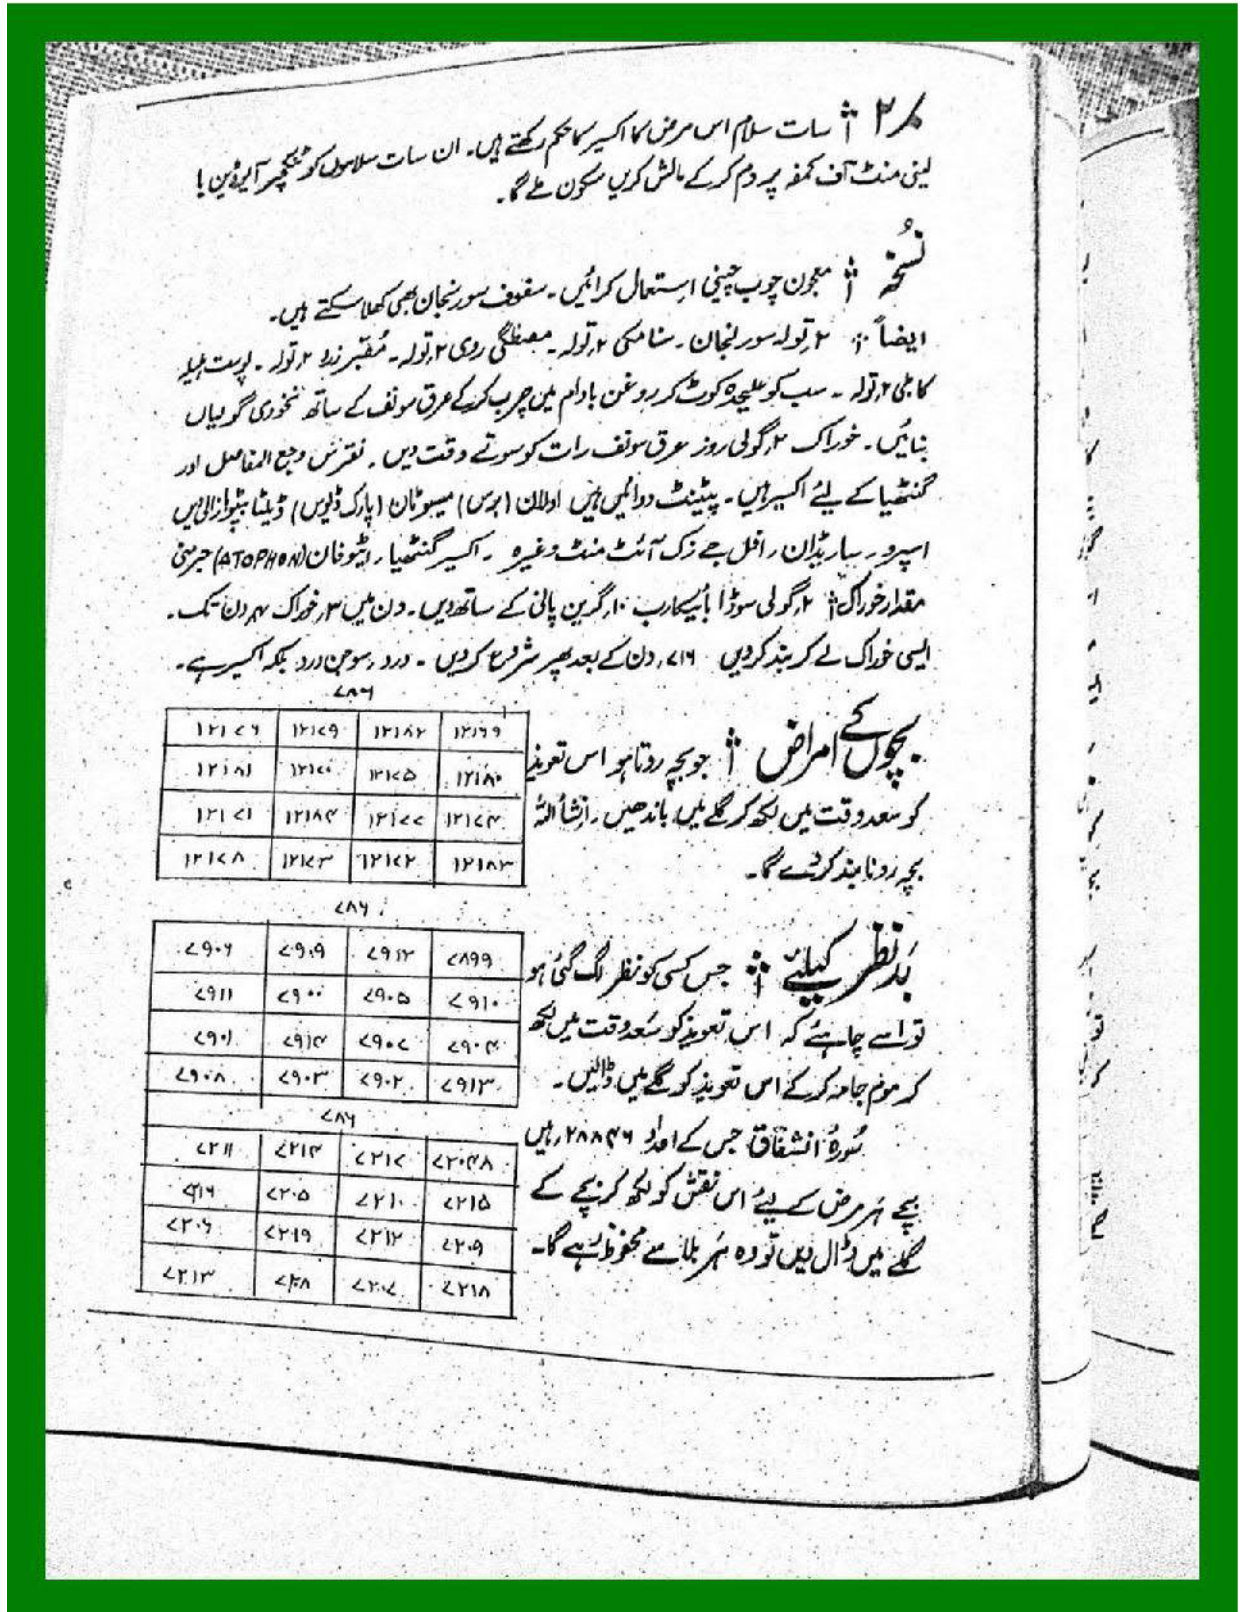 ۲؍ : سات سلام اس مرض کا اکسیر کا حکم رکھتے ہیں۔ ان سات سلاموں کو ٹنکچر آیوڈین یا
لینی منٹ آف کمفر پر دم کرکے مالش کریں سکون ملے گا۔
نسُخہ : معجون چوب چینی استعمال کرائیں۔ سفوف سورنجان بھی کھلا سکتے ہیں۔
ایضاً : ۲؍تولہ سورنجان۔ سنا مکی ۲؍تولہ۔ مصطگی رومی ۲؍تولہ۔ مُقبر زرد ۲؍تولہ۔ پوست ہلیلہ
کابلی ۲؍تولہ۔ سب کو علیحدہ کوٹ کر روغن بادام میں چرب کرکے عرق سونف کے ساتھ نخودی گولیاں
بنائیں۔ خوراک ۲؍گولی روز عرق سونف رات کو سوتے وقت دیں۔ نقرس وجع المفاصل اور
گنٹھیا کے لیے اکسیر ہیں۔ پیٹینٹ دوائیں ہیں
اسپرو۔ آئنٹ منٹ وغیرہ۔ اکسیر گنٹھیا۔ ایٹوفان (ATOPHON) جرمنی
مقدار خوراک : ۲؍گولی سوڈا بائیکارب ۱۰؍گرین پانی کے ساتھ دیں۔ دن میں ۳؍خوراک ۴؍دن تک۔
ایسی خوراک لے کر بند کردیں دن کے بعد پھر شروع کردیں۔ درد، سوجن درد بلکہ اکسیر ہے۔
بچوں کے امراض : جو بچہ روتا ہو اس تعویذ
کو سعد وقت میں لکھ کر گلے میں باندھیں۔ انشأ اللہ
بچہ رونا بند کردے گا۔
۷۸۶
۱۲۱۶۹ ۱۲۱۸۲ ۱۲۱۷۹ ۱۲۱۷۶
۱۲۱۸۰ ۱۲۱۷۵ ۱۲۱۷۰ ۱۲۱۸۱
۱۲۱۷۴ ۱۲۱۷۷ ۱۲۱۸۴ ۱۲۱۷۱
۱۲۱۸۳ ۱۲۱۷۲ ۱۲۱۷۳ ۱۲۱۷۸
بَد نظر کیلئے : جس کسی کو نظر لگ گئی ہو
تو اسے چاہئے کہ اس تعویذ کو سَعد وقت میں لکھ
کر موم جامہ کرکے اس تعویذ کو گلے میں ڈالیں۔
۷۸۶
۷۸۹۹ ۷۹۱۲ ۷۹۰۹ ۷۹۰۶
۷۹۱۰ ۷۹۰۵ ۷۹۰۰ ۷۹۱۱
۷۹۰۴ ۷۹۰۷ ۷۹۱۴ ۷۹۰۱
۷۹۱۳ ۷۹۰۲ ۷۹۰۳ ۷۹۰۸
سُورۂ انشقاق جس کے اعداد ۲۸۸۴۶؍ہیں
بچے ہَر مرض کے لیے اس نقش کو لکھ کر بچے کے
گلے میں ڈال دیں تو وہ ہَر بلا سے محفوظ رہے گا۔
۷۸۶
۷۲۰۴۸ ۷۲۱۷ ۷۲۱۴ ۷۲۱۱
۷۲۱۵ ۷۲۱۰ ۷۲۰۵
۷۲۰۹ ۷۲۱۲ ۷۲۱۹ ۷۲۰۶
۷۲۱۸ ۷۲۰۷ ۷۲۰۸ ۷۲۱۳